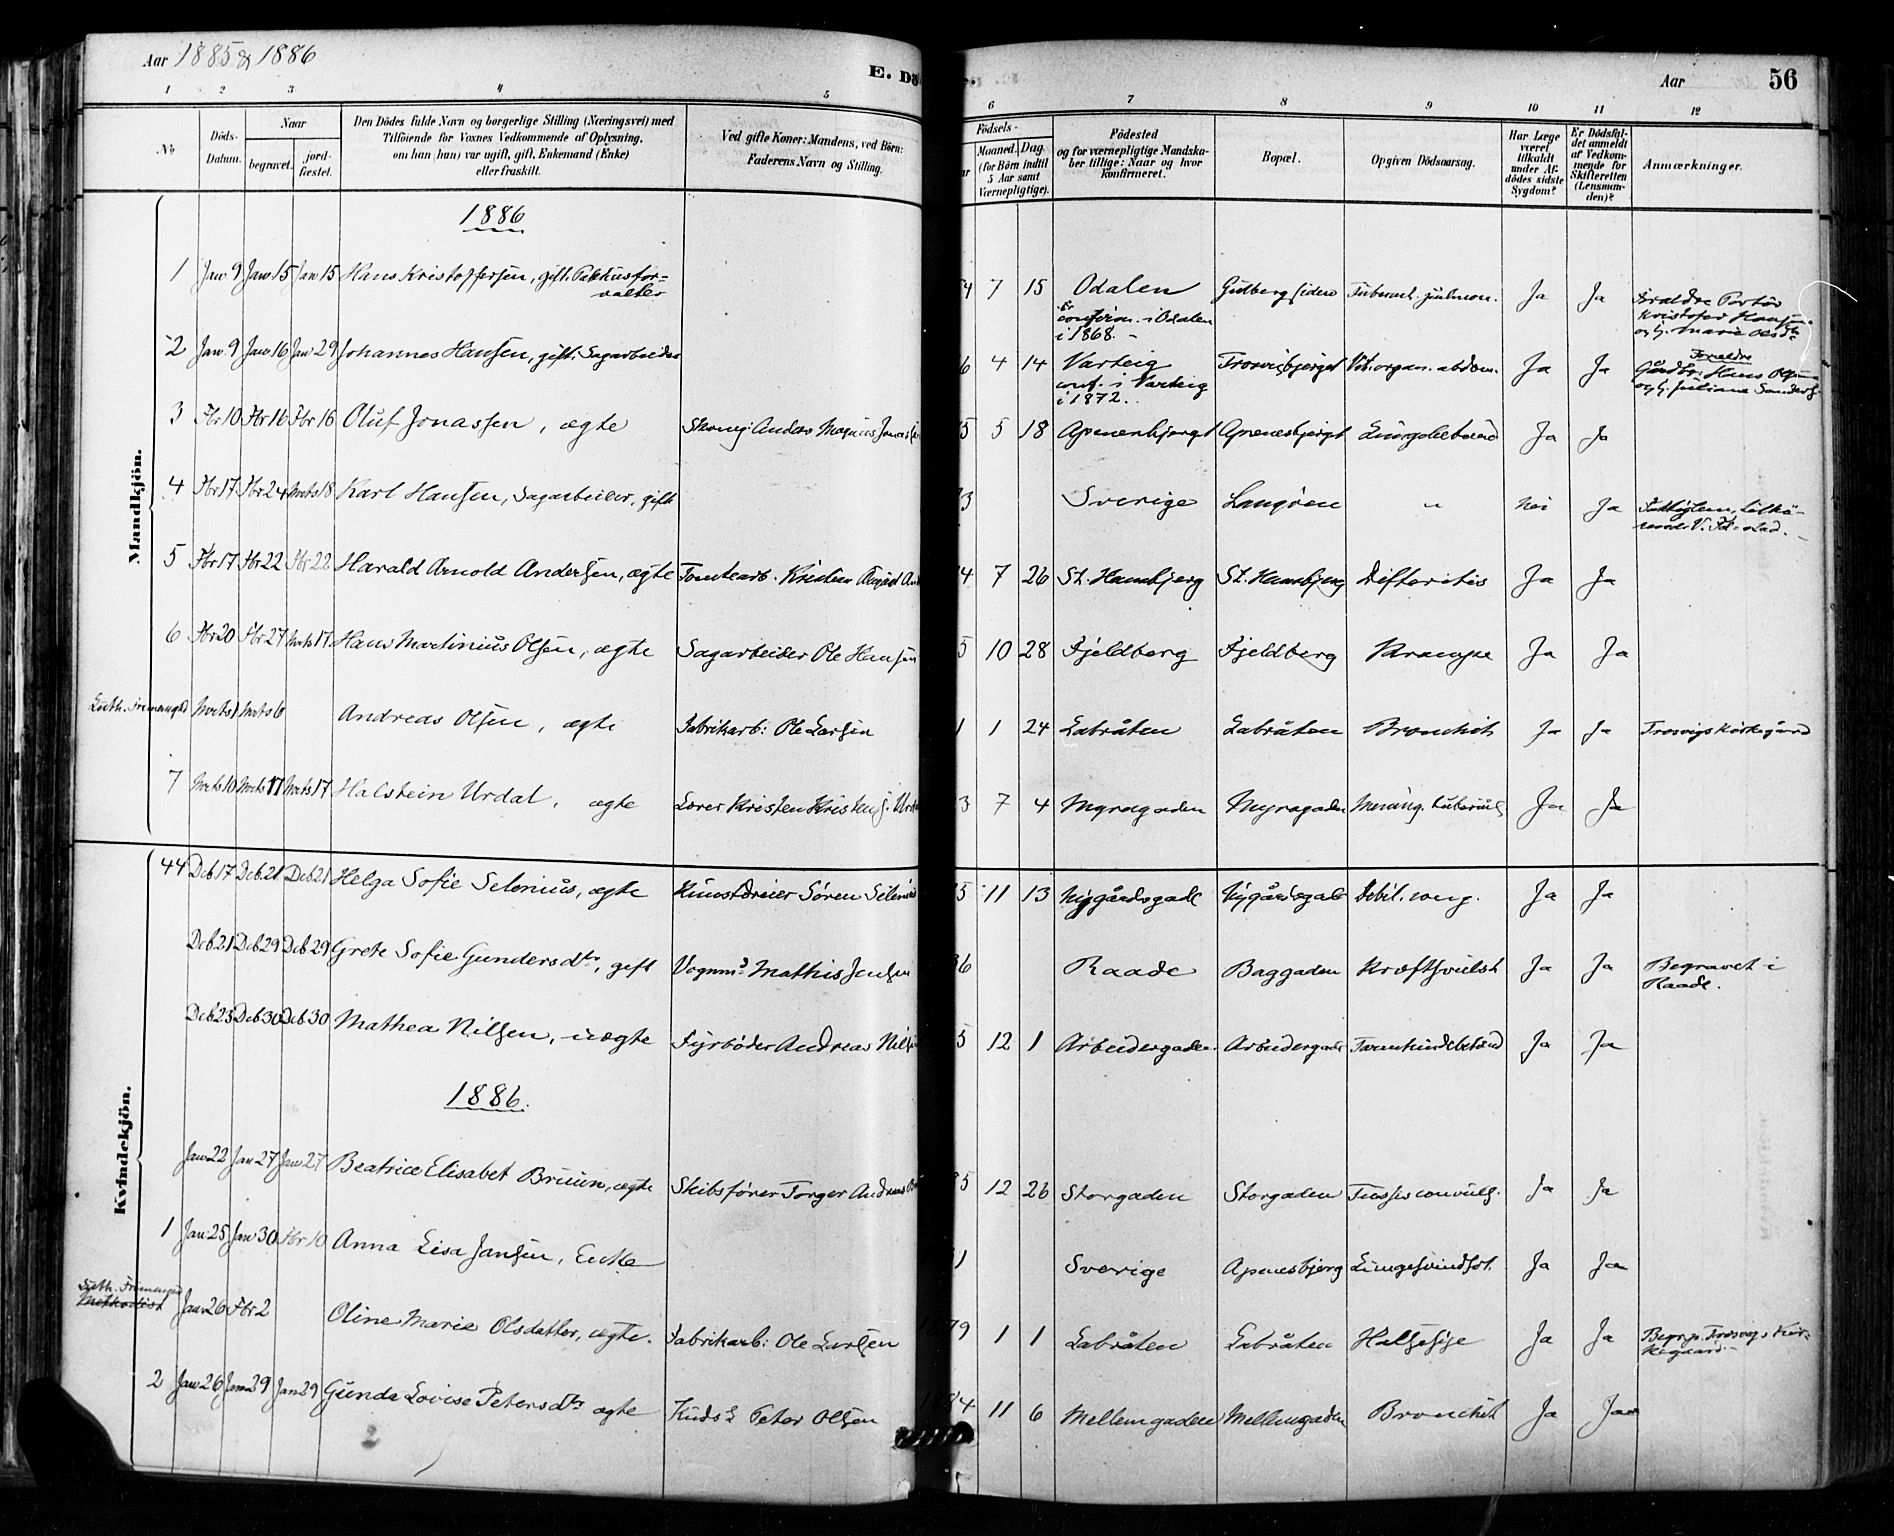 Aar 1885 & 1886
E. Dö
Aar
56
1 2 3 4 5 6 7 8 9 10 11 12
No
Döds-Datum.
Naar
begravet.
jord-fæstet.
Den Dödes fulde Navn og borgerlige Stilling (Næringsvei) med
Tilföiende for Voxnes Vedkommende af Oplysning,
om han (hun) var ugift, gift, Enkemand (Enke)
eller fraskilt.
Ved gifte Koner: Mandens, ved Börn:
Faderens Navn og Stilling.
Födsels-
Maaned. Dag.
(for Börn indtil
5 Aar samt
Værnepligtige).
Födested
og for værnepligtige Mandska-
ber tillige: Naar og hvor
Konfirmeret.
Bopæl.
Opgiven Dödsaarsag.
Har Læge
været
tilkaldt
under Af-
dödes sidste
Sygdom?
Er Dödsfal-
det anmeldt
af Vedkom-
mende for
Skifteretten
(Lensman-
den)?
Anmærkninger.
Mandkjön.
1886
1 Jan 9 Jan 15 Jan 15 Hans Kristoffersen, gift. Pakhusfor-
valter
4 7 15 Odalen Tubercul. pulmon. Ja Ja Foraldre
Kristofer
confirm. i Odalen
i 1868.
2 Jan 9 Jan 16 Jan 29 Johannes Hansen, gift. Sagarbeider
6 4 14 Varteig Vit. organ. abdom. Ja Ja Foraldre
Gårdbr. Hans
conf. i Varteig
i 1872.
3 Fbr 10 Fbr 16 Fbr 16 Oluf Jonassen, ægte Anders Magnus
5 5 18 Apenesbjergt Ja Ja
4 Fbr 17 Fbr 24 Mrts 18 Karl Hansen, Sagarbeider, gift
3 Sverige Langöen " Nei Ja
5 Fbr 17 Fbr 22 Fbr 22 Harald Arnold Andersen, ægte Tomtearb.
4 7 26 St. Hansbjerg St. Hansbjerg Difteritis Ja Ja
6 Fbr 20 Fbr 27 Mrts 17 Hans Martinius Olsen, ægte Sagarbeider Ole Hansen
5 10 28 Fjeldberg Fjeldberg Krampe Ja Ja
Luth. Frimenighed Mrts 1 Mrts 6 Andreas Olsen, ægte Fabrikarb: Ole Larsen
1 1 24 Labråten Labråten Bronchit Ja Ja Trosvigs Kirkegård
7 Mrts 10 Mrts 17 Mrts 17 Halstein Urdal, ægte Lærer Kristen
3 7 4 Myragaden Myragaden Mening. tubercul. Ja Ja
Kvindekjön.
44 Deb. 17 Deb. 21 Deb. 21 Helga Sofie Selenius, ægte Kunstdreier Sören Selenius
5 11 13 Nygårdsgade Nygårdsgade Debil. cong. Ja Ja
Deb. 21 Deb. 29 Deb. 29 Grete Sofie Gundersdtr, gift Vognmd Mathis Jensen
36 Raade Baggaden Kræftsvulst Ja Ja Begravet i
Raade.
Deb 23 Deb 30 Deb 30 Mathea Nilsen, uægte Fyrböder Andreas Nilsen
5 12 1 Arbeidergaden Arbeidergade Ja Ja
1886.
Jan 22 Jan 27 Jan 27 Beatrice Elisabet Bruun, ægte Skibsförer Torger Andreas
85 12 26 Storgaden Storgaden Tussis convuls. Ja Ja
1 Jan 25 Jan 30 Fbr 10 Anna Lisa Jansen, Enke
1 Sverige Apenesbjerg Lungesvindsot. Ja Ja
Luth. Frimenighed
Methodist Jan 26 Fbr 2 Oline Marie Olsdatter, ægte. Fabrikarb: Ole Larsen
79 1 1 Labråten Labråten Halssyge Ja Ja Begr. p. Trosvigs Kir-
kegaard.
2 Jan 26 Jan 29 Jan 29 Gunda Lovise Petersdtr ægte Kudsk Peter Olsen
84 11 6 Mellemgaden Mellemgaden Bronchit Ja Ja